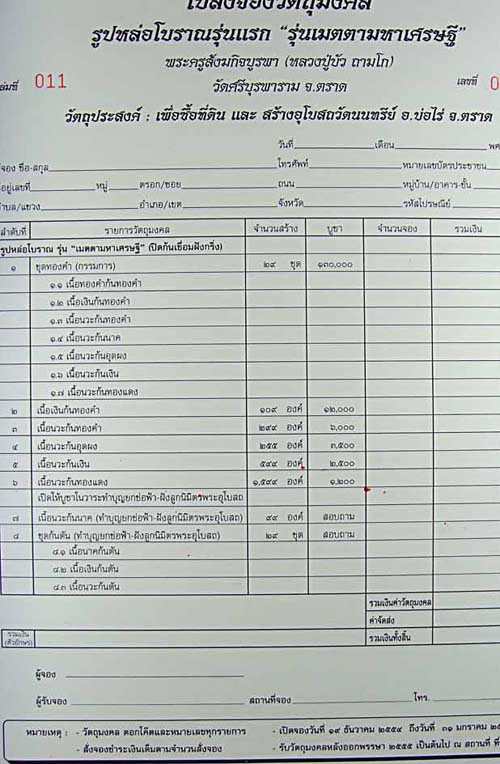 ใบสั่งจองวัตถุมงคล
รูปหล่อโบราณรุ่นแรก "รุ่นเมตตามหาเศรษฐี"
พระครูสังฆกิจบูรพา (หลวงปู่บัว ถามโก)
ล่มที่ 011 วัดศรีบุรพาราม จ.ตราด เลขที่ 0
วัตถุประสงค์ : เพื่อซื้อที่ดิน และ สร้างอุโบสถวัดนนทรีย์ อ.บ่อไร่ จ.ตราด
วันที่ เดือน พศ
จอง ชื่อ-สกุล โทรศัพท์ หมายเลขบัตรประชาชน
อยู่เลขที่ หมู่ ตรอก/ซอย ถนน หมู่บ้าน/อาคาร-ชั้น
ำบล/แขวง อำเภอ/เขต จังหวัด รหัสไปรษณีย์
ลำดับที่ รายการวัตถุมงคล จำนวนสร้าง บูชา จำนวนจอง รวมเงิน
รูปหล่อโบราณ รุ่น "เมตตามหาเศรษฐี" (ปิดก้นเชื่อมฝังกริ่ง)
๑ ชุดทองคำ (กรรมการ) ๒๙ ชุด ๑๓๐,๐๐๐
๑.๑ เนื้อทองคำก้นทองคำ
๑.๒ เนื้อเงินก้นทองคำ
๑.๓ เนื้อนวะก้นทองคำ
๑.๔ เนื้อนวะก้นนาค
๑.๕ เนื้อนวะก้นอุดผง
๑.๖ เนื้อนวะก้นเงิน
๑.๗ เนื้อนวะก้นทองแดง
๒ เนื้อเงินก้นทองคำ ๑๐๙ องค์ ๑๒,๐๐๐
๓ เนื้อนวะก้นทองคำ ๒๙๙ องค์ ๖,๐๐๐
๔ เนื้อนวะก้นอุดผง ๒๕๕ องค์ ๓,๕๐๐
๕ เนื้อนวะก้นเงิน ๕๙๙ องค์ ๒,๕๐๐
๖ เนื้อนวะก้นทองแดง ๑,๕๙๙ องค์ ๑,๒๐๐
เปิดให้บูชาในวาระทำบุญยกช่อฟ้า-ฝังลูกนิมิตรพระอุโบสถ
๗ เนื้อนวะก้นนาค (ทำบุญยกช่อฟ้า-ฝังลูกนิมิตรพระอุโบสถ) ๙๙ องค์ สอบถาม
๘ ชุดก้นตัน (ทำบุญยกช่อฟ้า-ฝังลูกนิมิตรพระอุโบสถ) ๒๙ ชุด สอบถาม
๘.๑ เนื้อนาคก้นตัน
๘.๒ เนื้อเงินก้นตัน
๘.๓ เนื้อนวะก้นตัน
รวมเงินค่าวัตถุมงคล
ค่าจัดส่ง
รวมเงิน (ตัวอักษร) รวมเงินทั้งสิ้น
ผู้จอง
ผู้รับจอง สถานที่จอง โทร.
หมายเหตุ : - วัตถุมงคล ตอกโค๊ดและหมายเลขทุกรายการ - เปิดจองวันที่ ๑๙ ธันวาคม ๒๕๕๔ ถึงวันที่ ๓๑ มกราคม ๒๕
- สั่งจองชำระเงินเต็มตามจำนวนสั่งจอง - รับวัตถุมงคลหลังออกพรรษา ๒๕๕๕ เป็นต้นไป ณ สถานที่ ที่